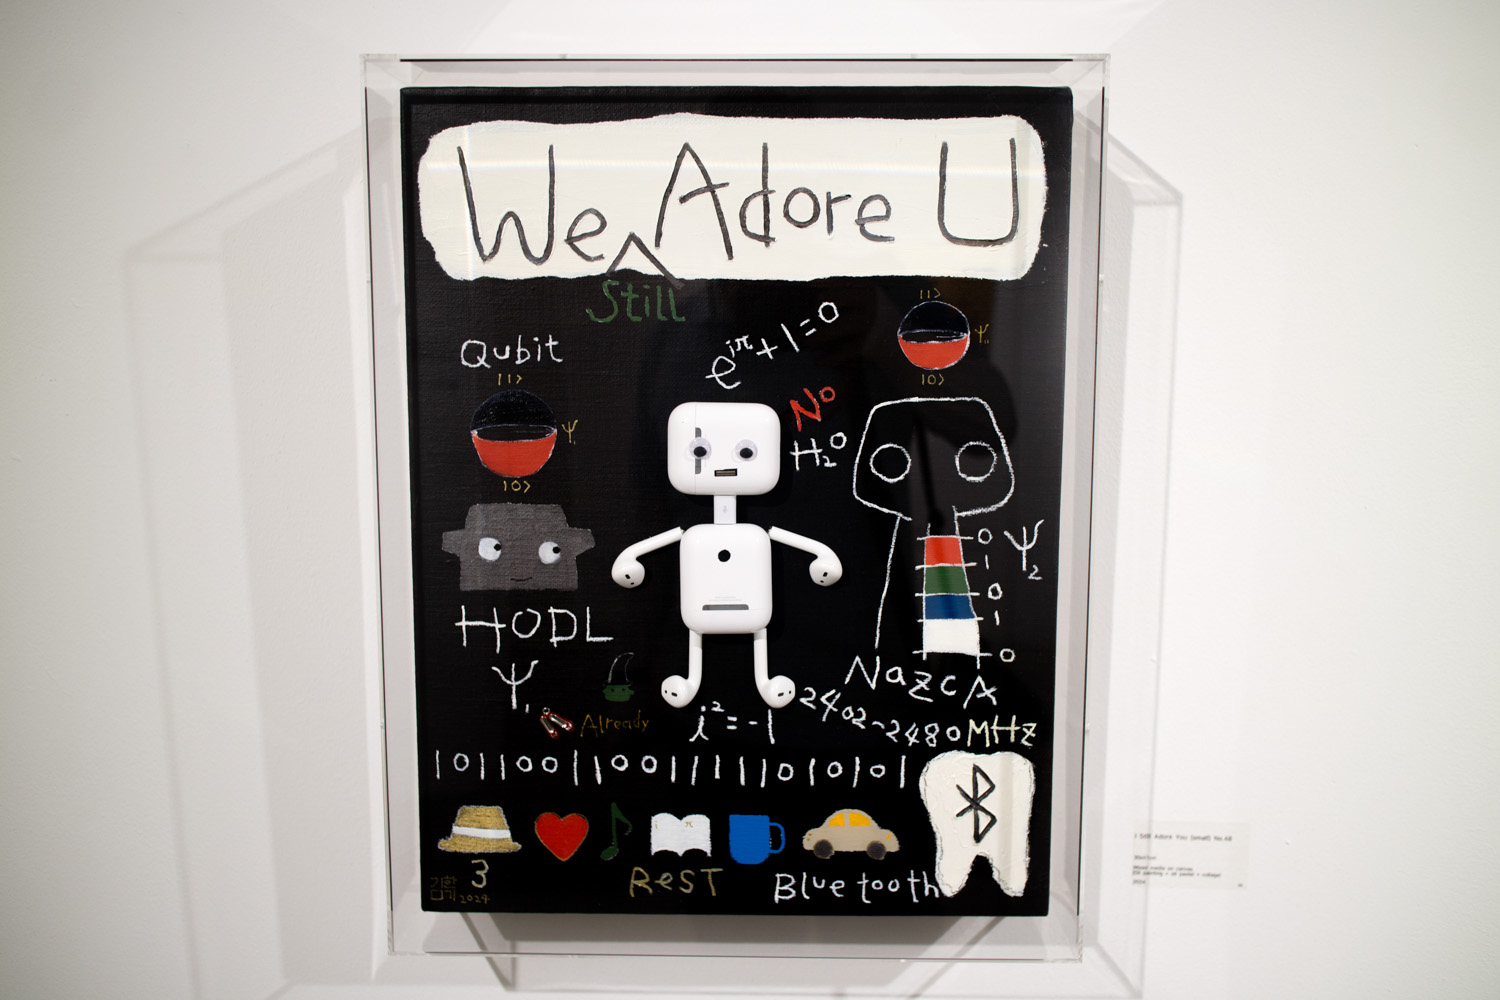 We Adore U
Still
Qubit
|1>
ψ₁
|0>
e^iπ+1=0
|1>
ψ
|0>
No
H₂O
0
1
0
1
0
ψ₂
HODL
ψ₁
Already
i²=-1
NazcA
2402~2480MHz
10110011001111101010101
3
2024
ReST
Bluetooth
I Still Adore You (small) No.48
Mixed media on canvas
2024